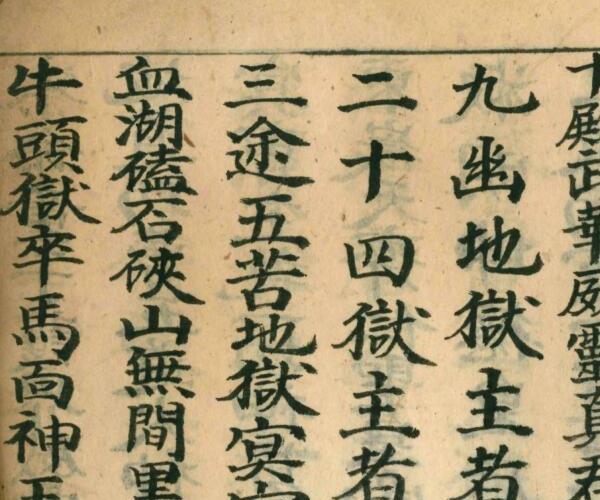 十殿武華威靈真君
九幽地獄主者
二十四獄主者
三途五苦地獄㝠官
血湖磕石硤山無間黑
牛頭獄卒馬面神王